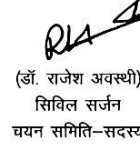 (डॉ. राजेश अवस्थी)
सिविल सर्जन
चयन समिति–सदस्य